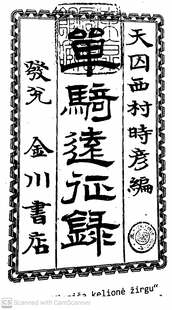 天囚西村時彦編
單騎遠征録
發兌 金川書店
kelionė žirgu“
Scanned with CamScanner